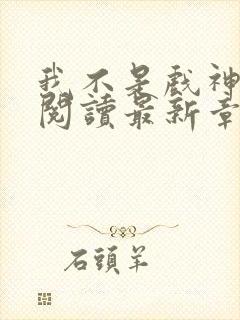 我不是戲神
閱讀最新章
石頭羊